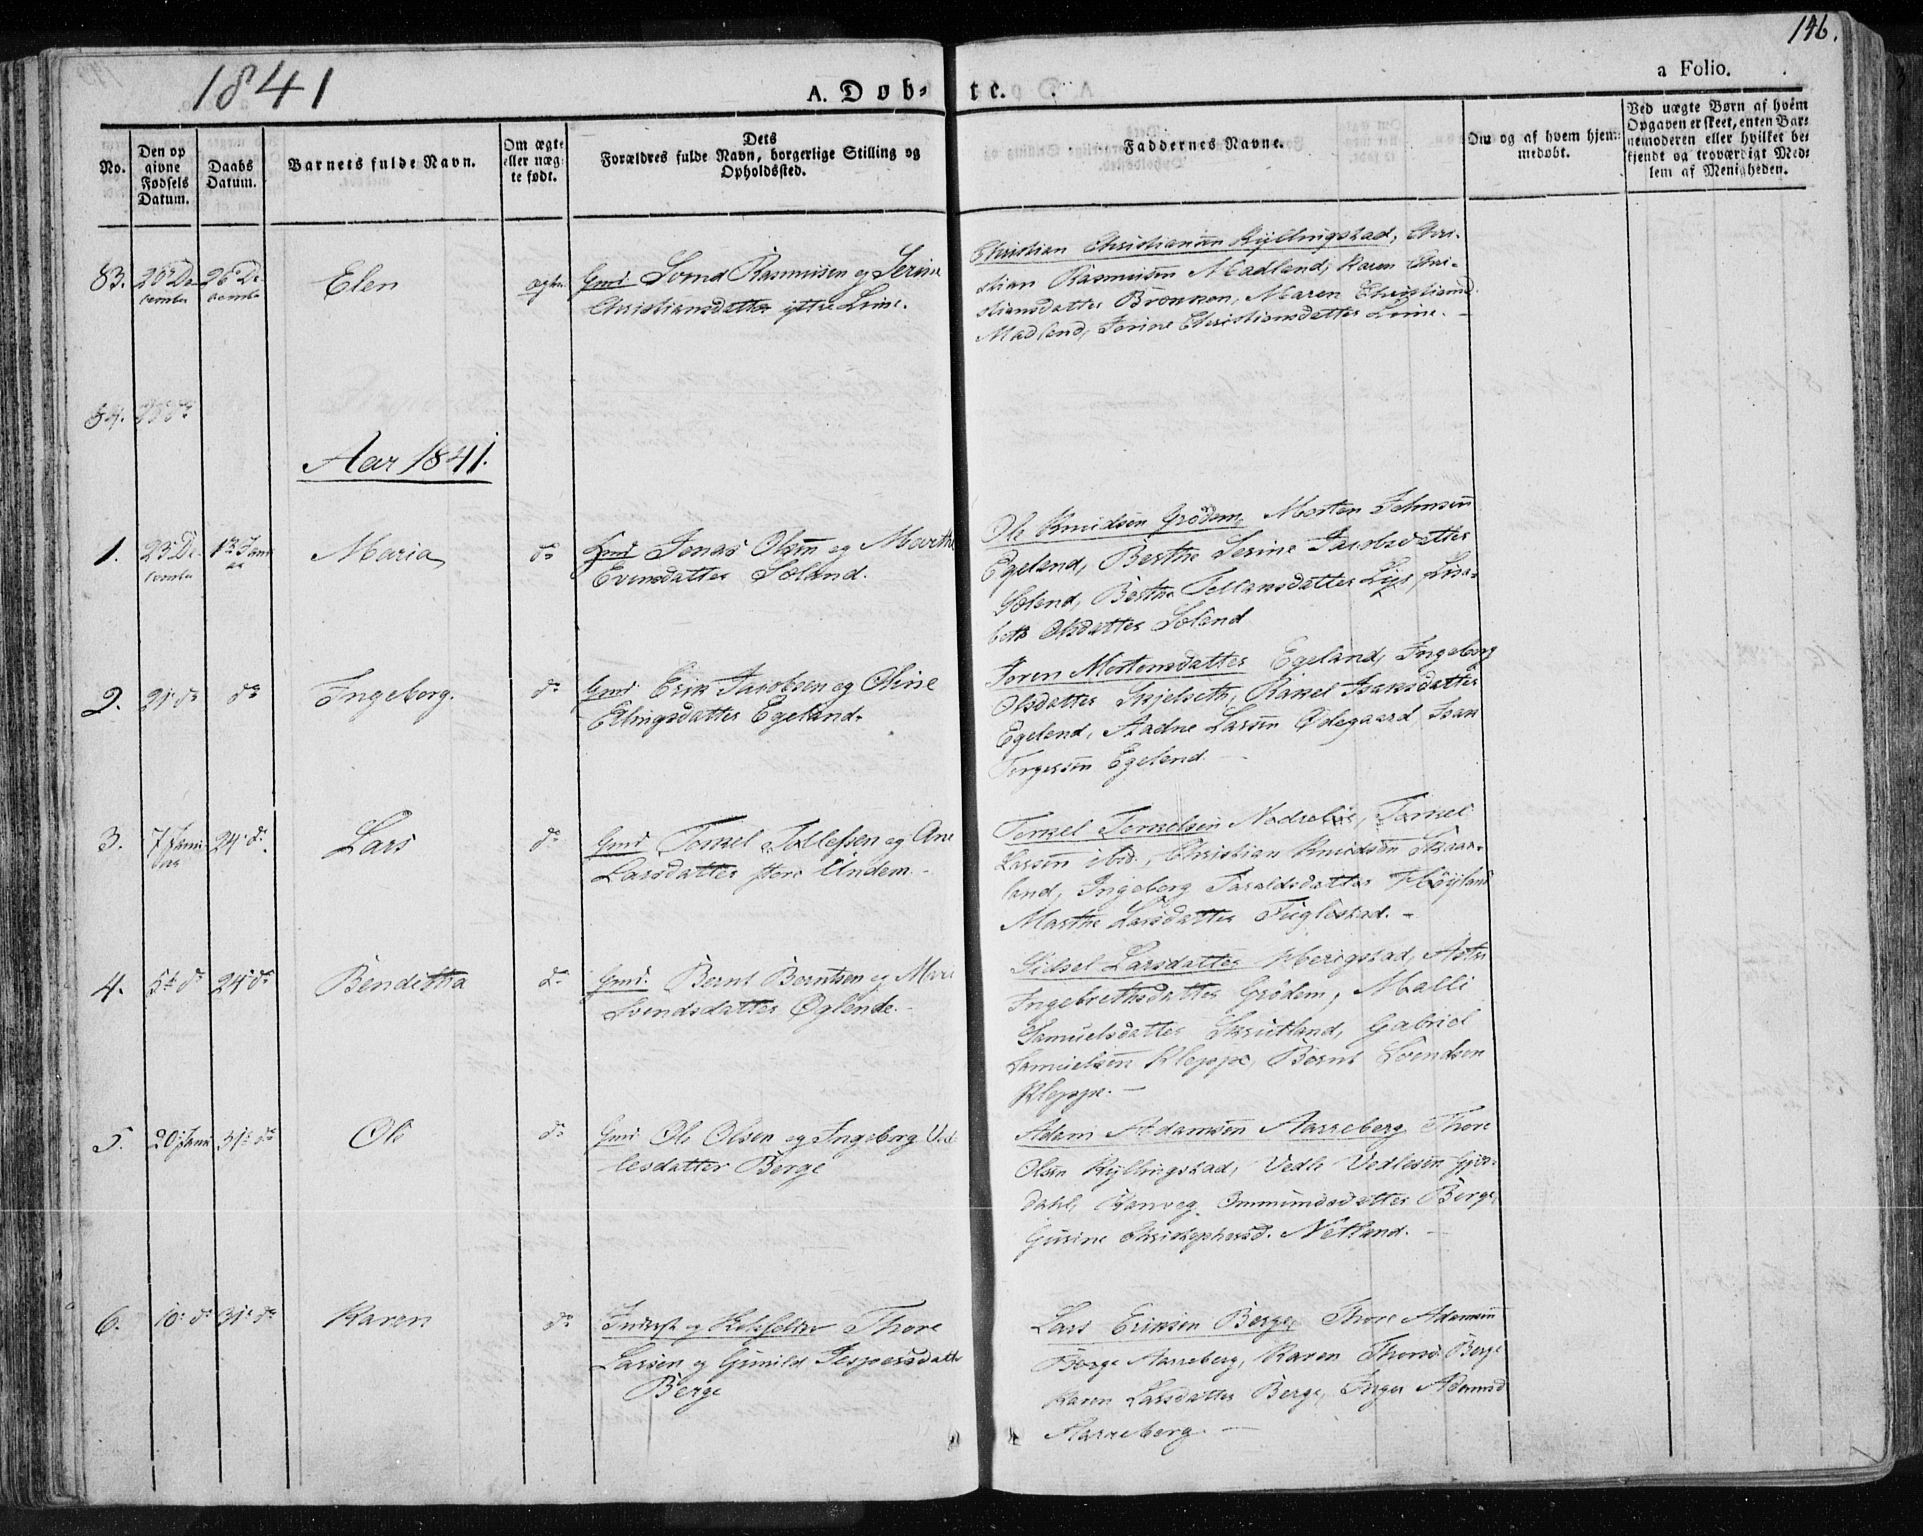 1841
146.
A. Døb-
te.
a Folio.
No.
Den op
givne
Fødsels
Datum.
Daabs
Datum.
Barnets fulde Navn.
Om ægte
eller uæg-
te født.
Dets
Forældres fulde Navn, borgerlige Stilling og
Opholdssted.
Faddernes Navne.
Om og af hvem hjem-
medøbt.
Ved uægte Børn af hvem
Opgaven er skeet, enten Bar-
nemoderen eller hvilket be-
kjendt og troværdigt Med-
lem af Menigheden.
83.
20 De
cember
26 De
cember
Elen
ægte
Gmd Svend Rasmussen og Serine
Christiansdatter ytre Lime.
Christian Christiansen Kyllingstad, Chri-
stian Rasmussen Madland, Karen Chri-
stiansdatter Brounson, Maren Christiansd
Madland, Serine Christiansdatter Lime.
84.
Aar 1841.
1.
23 De
cember
1ste Janu
ar
Maria
do
Gmd Jonas Olsen og Marthe
Evensdatter Soland.
Ole Knudsen Grödem, Morten Johnsen
Egeland, Berthe Serine Jacobsdatter
Soland, Berthe Tollansdatter Lye, Lisa-
beth Olsdatter Soland
2.
21 do
do
Ingeborg.
do
Gmd Erik Jacobsen og Oline
Erlingsdatter Egeland.
Joren Mortensdatter Egeland, Ingeborg
Olsdatter Skjelseth, Rakel Isaksdatter
Egeland, Aadne Larsen Ødegaard, Isak
Torgersen Egeland.
3.
7 Janu
ar
24 do
Lars
do
Gmd Torkel Tollefsen og Ane
Larsdatter store Undem.
Torkel Torkelsen Nodreliö, Torkel
Larsen ibid., Christian Knudsen Skaar-
land, Ingeborg Taraldsdatter Höyland
Marthe Larsdatter Fuglestad.
4.
5te do
24 do
Bendikta
do
Gmd. Bernt Berntsen og Mari
Svendsdatter Øglende.
Sidsel Larsdatter Herigstad, Astri
Ingebrethsdatter Grödem, Malli
Samuelsdatter Skrutland, Gabriel
Samuelsen Kleppe, Bernt Svendsen
Kleppe.
5.
20 Janu
31te do
Ole
do
Gmd Ole Olsen og Ingeborg Ved
lesdatter Berge
Adam Adamsen Aarreberg Thore
Olsen Kyllingstad, Vedle Vedlesen Gjes-
dahl, Ranveg Ommundsdatter Berge,
Gurine Christophersd. Netland.
6.
10 do
31te do
Karen
do
Inderst og Thore
Larsen og Gunild Jespersdatter
Berge
Lars Eriksen Berge, Thore Adamsen
Börge Aarreberg, Karen Thorsd Berge
Karen Larsdatter Berge, Inger Adamsd
Aarreberg.